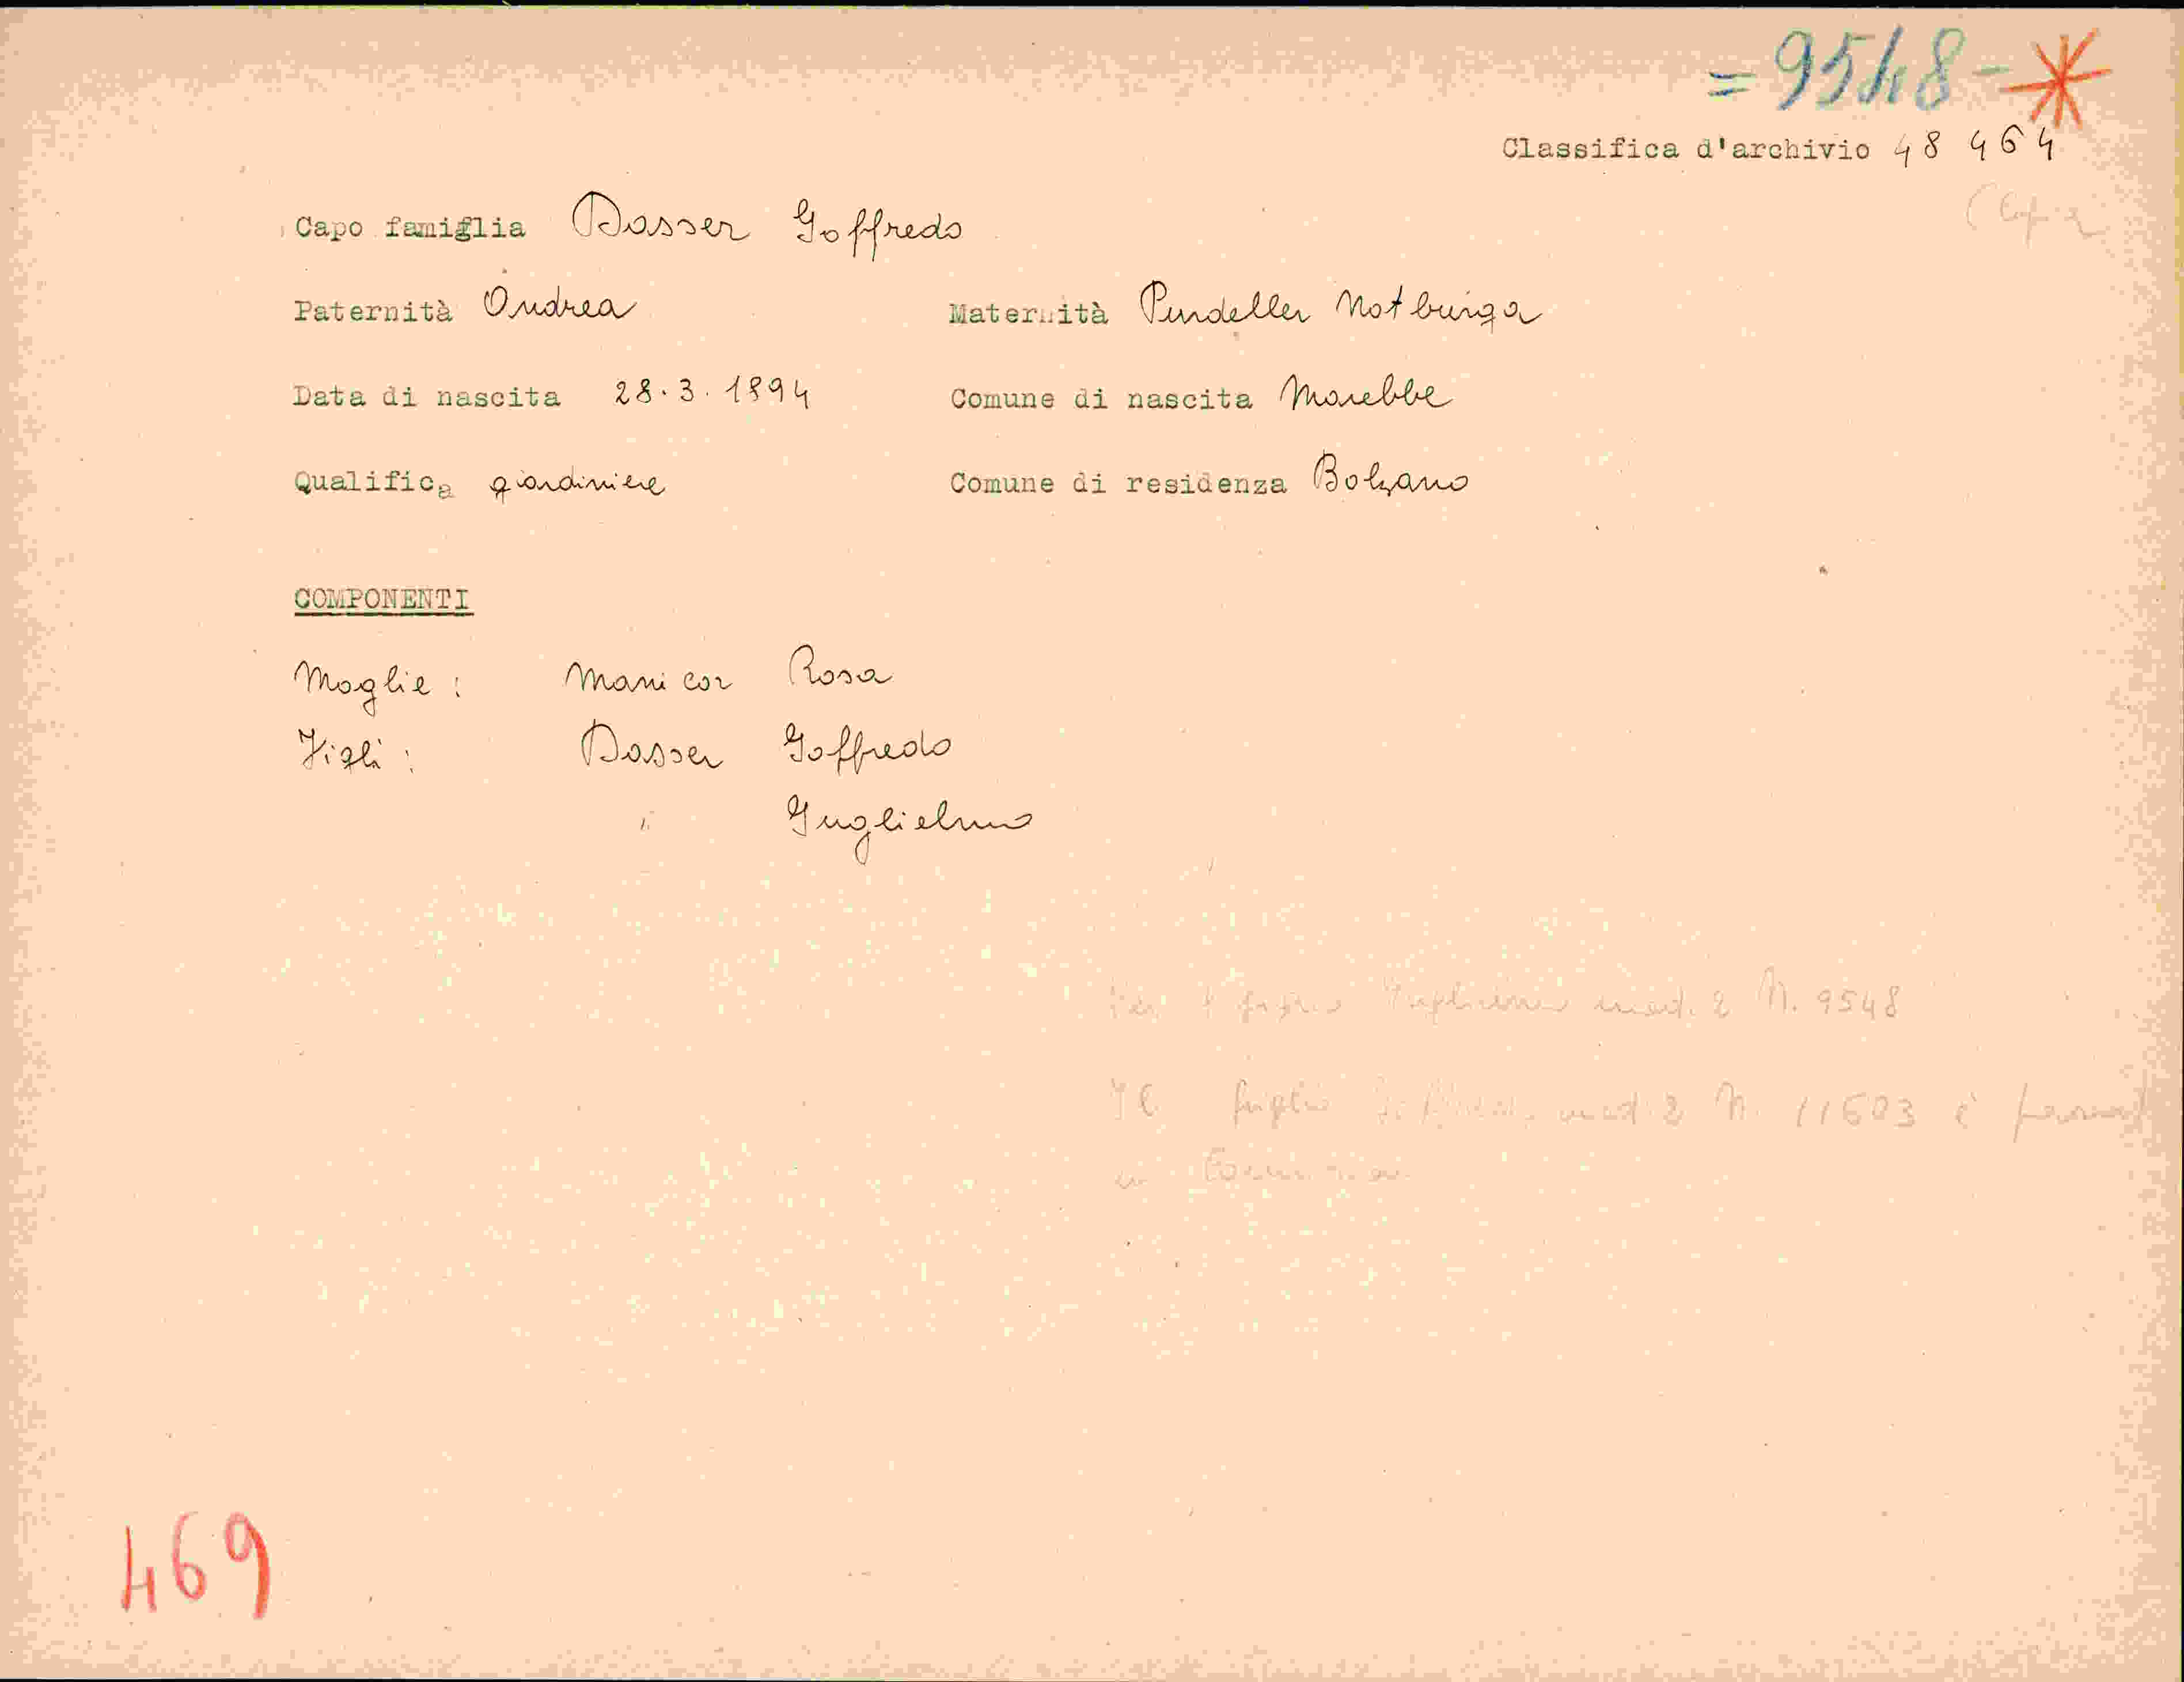 = 9548 - *
Classifica d'archivio 48 464
Capo famiglia Dasser Goffredo
Paternità Andrea Maternità Pindeller Notburga
Data di nascita 28.3.1894 Comune di nascita Marebbe
Qualifica giardiniere Comune di residenza Bolzano
COMPONENTI
Moglie : Manicor Rosa
Figli : Dasser Goffredo
" Guglielmo
mod. 2 N. 9548
Il figlio mod. 2 N. 11603 è
469